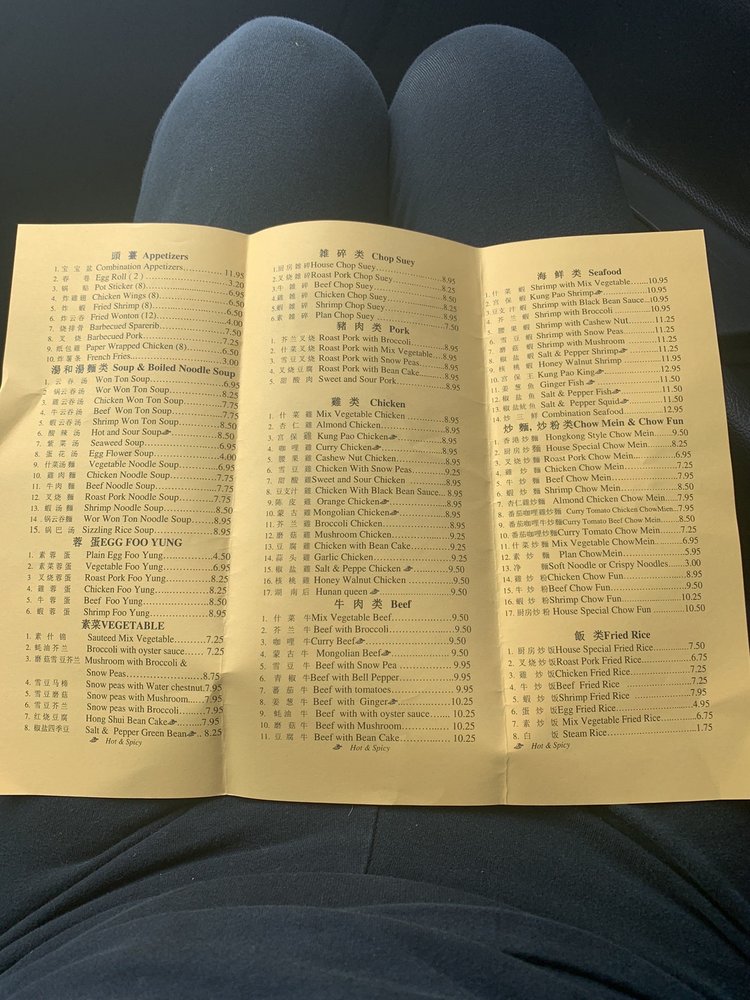 頭 薹 Appetizers
1. 宝 宝 盆 Combination Appetizers 11.95
2. 春 卷 Egg Roll ( 2 ) 3.20
3. 锅 贴 Pot Sticker (8)
4. 炸雞翅 Chicken Wings (8)
5. 炸 蝦 Fried Shrimp (8)
6. 炸云吞 Fried Wonton (12)
7. 烧排骨 Barbecued Sparerib
8. 叉 烧 Barbecued Pork
9. 纸包雞 Paper Wrapped Chicken (8) 6.50
10. 炸薯条 French Fries 3.00
湯和湯麵类 Soup & Boiled Noodle Soup
1. 云 吞 汤 Won Ton Soup 6.95
2. 窩云吞汤 Wor Won Ton Soup 8.25
3. 雞云吞汤 Chicken Won Ton Soup 7.75
4. 牛云吞汤 Beef Won Ton Soup 7.75
5. 蝦云吞汤 Shrimp Won Ton Soup 8.50
6. 酸 辣 汤 Hot and Sour Soup
7. 紫 菜 汤 Seaweed Soup
8. 蛋 花 汤 Egg Flower Soup
9. 什菜汤麵 Vegetable Noodle Soup 6.95
10. 雞 肉 麵 Chicken Noodle Soup 7.75
11. 牛 肉 麵 Beef Noodle Soup 7.75
12. 叉 烧 麵 Roast Pork Noodle Soup 7.75
13. 蝦 汤 麵 Shrimp Noodle Soup 8.50
14. 锅云吞麵 Wor Won Ton Noodle Soup 8.95
15. 锅 巴 汤 Sizzling Rice Soup 8.95
蓉 蛋EGG FOO YUNG
1. 素 蓉 蛋 Plain Egg Foo Yung 4.50
2. 素菜蓉蛋 Vegetable Foo Yung 6.95
3. 叉烧蓉蛋 Roast Pork Foo Yung 8.25
4. 雞 蓉 蛋 Chicken Foo Yung 8.25
5. 牛 蓉 蛋 Beef Foo Yung 8.50
6. 蝦 蓉 蛋 Shrimp Foo Yung 8.95
素菜VEGETABLE
1. 素 什 锦 Sauteed Mix Vegetable 7.25
2. 蚝油芥兰 Broccoli with oyster sauce 7.25
3. 蘑菇雪豆芥兰 Mushroom with Broccoli &
Snow Peas 8.75
4. 雪豆马蹄 Snow peas with Water chestnut. 7.95
5. 雪豆蘑菇 Snow peas with Mushroom 7.95
6. 雪豆芥兰 Snow peas with Broccoli 7.95
7. 红烧豆腐 Hong Shui Bean Cake 7.95
8. 椒盐四季豆 Salt & Pepper Green Bean 8.25
Hot & Spicy
雜 碎 类 Chop Suey
1.厨房雜碎House Chop Suey 8.95
2.叉烧雜碎Roast Pork Chop Suey 8.25
3.牛 雜碎 Beef Chop Suey 8.50
4.雞 雜碎 Chicken Chop Suey 8.25
5.蝦 雜碎 Shrimp Chop Suey 8.95
6.素 雜碎 Plan Chop Suey 7.50
豬 肉 类 Pork
1. 芥兰叉烧 Roast Pork with Broccoli 8.95
2. 什菜叉烧 Roast Pork with Mix Vegetable 8.95
3. 雪豆叉烧 Roast Pork with Snow Peas 8.95
4. 叉烧豆腐 Roast Pork with Bean Cake 8.95
5. 甜 酸 肉 Sweet and Sour Pork 8.95
雞 类 Chicken
1. 什 菜 雞 Mix Vegetable Chicken 8.95
2. 杏 仁 雞 Almond Chicken 8.95
3. 宫 保 雞 Kung Pao Chicken 8.95
4. 咖 哩 雞 Curry Chicken 8.95
5. 腰 果 雞 Cashew Nut Chicken 8.95
6. 雪 豆 雞 Chicken With Snow Peas 9.25
7. 甜 酸 雞Sweet and Sour Chicken 8.95
8. 豆支汁 雞 Chicken With Black Bean Sauce 8.95
9. 陈 皮 雞 Orange Chicken 8.95
10. 蒙 古 雞 Mongolian Chicken 8.95
11. 芥 兰 雞 Broccoli Chicken 8.95
12. 蘑 菇 雞 Mushroom Chicken 9.25
13. 豆 腐 雞 Chicken with Bean Cake 9.25
14. 蒜 头 雞 Garlic Chicken 9.25
15. 椒 盐 雞 Salt & Peppe Chicken 9.50
16. 核 桃 雞 Honey Walnut Chicken 9.50
17. 湖 南 后 Hunan queen 9.50
牛 肉 类 Beef
1. 什 菜 牛Mix Vegetable Beef 9.50
2. 芥 兰 牛 Beef with Broccoli 9.50
3. 咖 哩 牛Curry Beef 9.50
4. 蒙 古 牛 Mongolian Beef 9.50
5. 雪 豆 牛 Beef with Snow Pea 9.95
6. 青 椒 牛Beef with Bell Pepper 9.95
7. 蕃 茄 牛 Beef with tomatoes 9.95
8. 姜 葱 牛 Beef with Ginger 10.25
9. 蚝 油 牛 Beef with with oyster sauce 10.25
10. 蘑 菇 牛 Beef with Mushroom 10.25
11. 豆 腐 牛 Beef with Bean Cake 10.25
Hot & Spicy
海 鮮 类 Seafood
1. 什 菜 蝦 Shrimp with Mix Vegetable 10.95
2. 宫 保 蝦 Kung Pao Shrimp 10.95
3.豆支汁 蝦 Shrimp with Black Bean Sauce 10.95
4. 芥 兰 蝦 Shrimp with Broccoli 10.95
5. 腰 果 蝦 Shrimp with Cashew Nut 11.25
6. 雪 豆 蝦 Shrimp with Snow Peas 11.25
7. 蘑 菇 蝦 Shrimp with Mushroom 11.25
8. 椒 盐 蝦 Salt & Pepper Shrimp 11.25
9. 核 桃 蝦 Honey Walnut Shrimp 11.95
10. 宫 保 王 Kung Pao King 12.95
11. 姜 葱 鱼 Ginger Fish 11.50
12. 椒 盐 鱼 Salt & Pepper Fish 11.50
13. 椒盐鱿鱼 Salt & Pepper Squid 11.50
14. 炒 三 鲜 Combination Seafood 12.95
炒 麵, 炒 粉类Chow Mein & Chow Fun
1. 香港炒麵 Hongkong Style Chow Mein 9.50
2. 厨房炒麵 House Special Chow Mein 8.25
3. 叉烧炒麵 Roast Pork Chow Mein 6.95
4. 雞 炒 麵 Chicken Chow Mein 7.25
5. 牛 炒 麵 Beef Chow Mein 7.95
6. 蝦 炒 麵 Shrimp Chow Mein 8.50
7. 杏仁雞炒麵 Almond Chicken Chow Mein 7.95
8. 番茄咖哩雞炒麵 Curry Tomato Chicken ChowMien 7.95
9. 番茄咖哩牛炒麵Curry Tomato Beef Chow Mein 8.50
10. 番茄咖哩炒麵Curry Tomato Chow Mein 7.25
11. 什菜炒麵 Mix Vegetable ChowMein 6.95
12. 素 炒 麵 Plan ChowMein 5.95
13. 净 麵Soft Noodle or Crispy Noodles 3.00
14. 雞 炒 粉Chicken Chow Fun 8.95
15. 牛 炒 粉Beef Chow Fun 9.50
16. 蝦 炒 粉Shrimp Chow Fun 10.25
17. 厨房炒粉 House Special Chow Fun 10.50
飯 类Fried Rice
1. 厨房炒饭House Special Fried Rice 7.50
2. 叉烧炒饭Roast Pork Fried Rice 6.75
3. 雞 炒 饭Chicken Fried Rice 7.25
4. 牛 炒 饭Beef Fried Rice 7.25
5. 蝦 炒 饭Shrimp Fried Rice 7.95
6. 蛋 炒 饭Egg Fried Rice 4.95
7. 素 炒 饭 Mix Vegetable Fried Rice 6.75
8. 白 饭 Steam Rice 1.75
Hot & Spicy